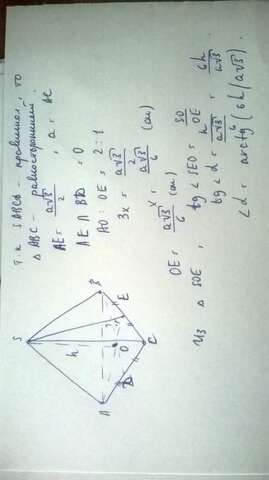 Т.к SABCD - правильная, то
△ABC - равносторонний.
AE = a√3/2 , a = AC
AE ∩ BD = O
AO : OE = 2 : 1
3x = a√3/2
x = a√3/6 (см)
OE = a√3/6 (см)
из △ SOE , tg∠SEO = SO/OE
tg∠α = h/(a√3/6) = 6h/a√3
∠α = arctg(6h/a√3).
S
h
A
B
E
O
D
C